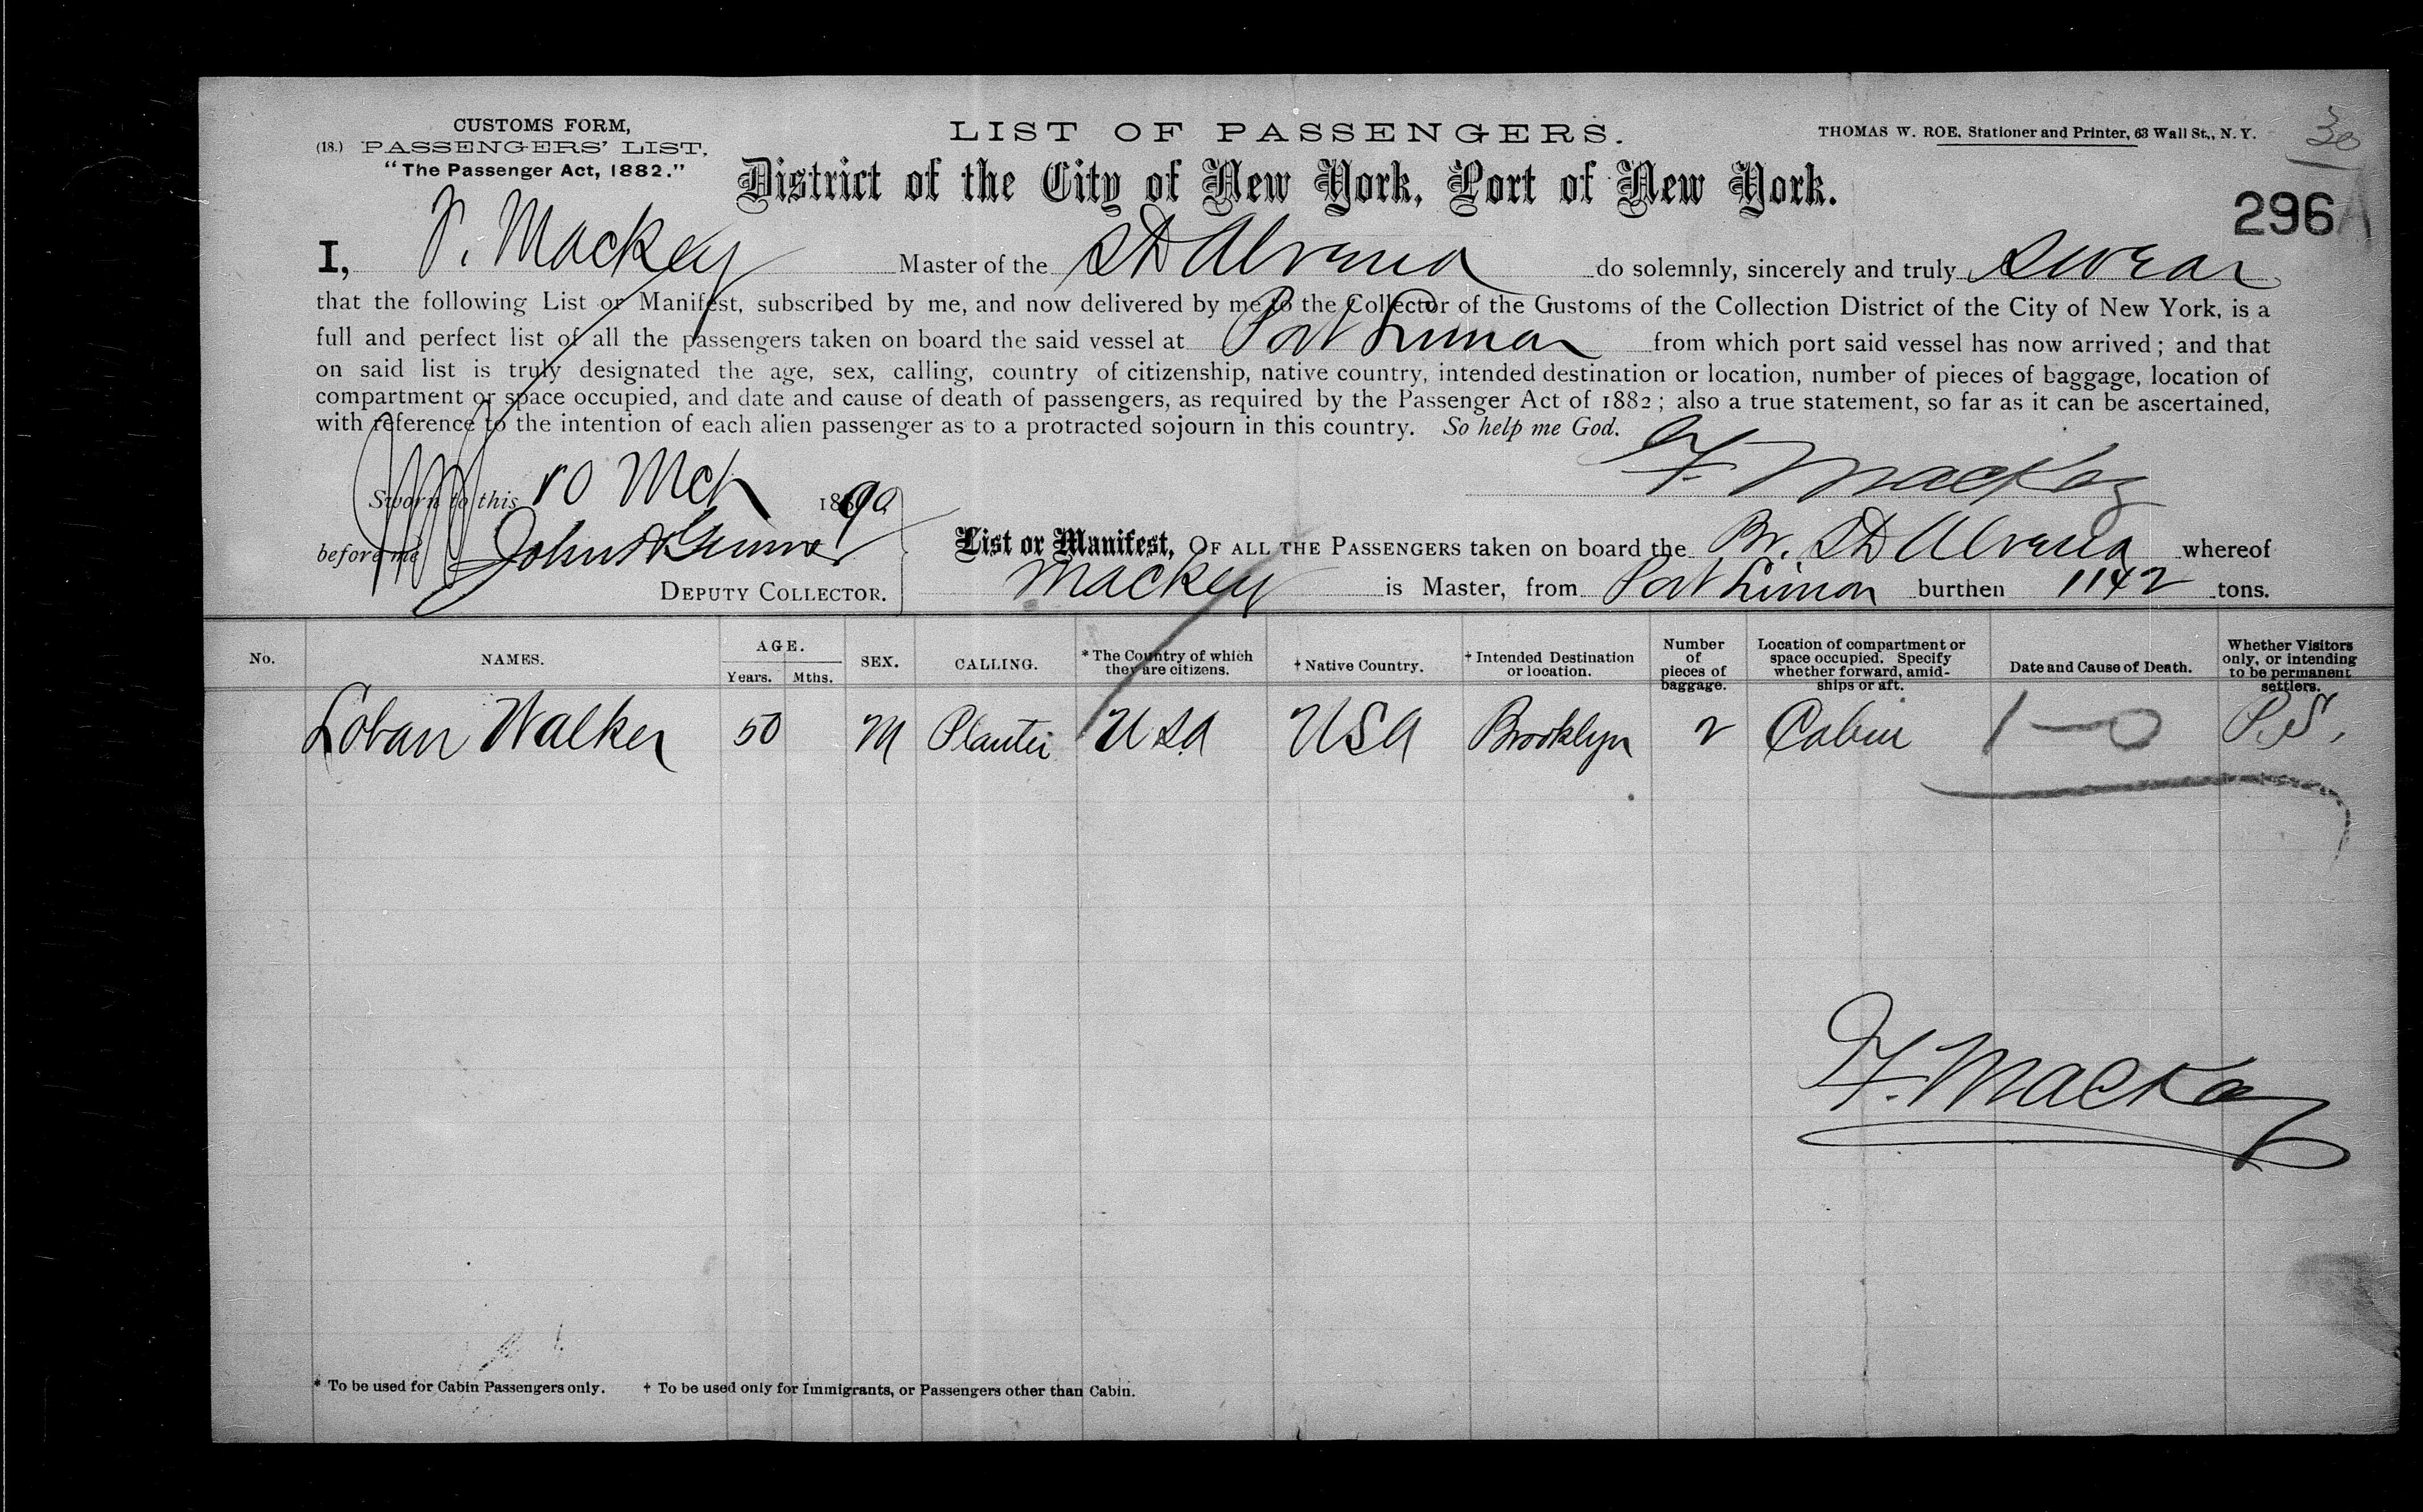 CUSTOMS FORM,
(18.) PASSENGERS' LIST,
"The Passenger Act, 1882."
LIST OF PASSENGERS.
THOMAS W. ROE, Stationer and Printer, 63 Wall St., N. Y.
30
District of the City of New York, Port of New York.
296A
I, Mackey Master of the Alvena do solemnly, sincerely and truly swear
that the following List or Manifest, subscribed by me, and now delivered by me to the Collector of the Gustoms of the Collection District of the City of New York, is a
full and perfect list of all the passengers taken on board the said vessel at Port Limon from which port said vessel has now arrived; and that
on said list is truly designated the age, sex, calling, country of citizenship, native country, intended destination or location, number of pieces of baggage, location of
compartment or space occupied, and date and cause of death of passengers, as required by the Passenger Act of 1882; also a true statement, so far as it can be ascertained,
with reference to the intention of each alien passenger as to a protracted sojourn in this country. So help me God.
F. Mackay
Sworn to this 10 Mch 1890
before me John
DEPUTY COLLECTOR.
List or Manifest, OF ALL THE PASSENGERS taken on board the Br. Alvena whereof
Mackey is Master, from Port Limon burthen 1142 tons.
No. NAMES. AGE. Years. Mths. SEX. CALLING. * The Country of which they are citizens. † Native Country. † Intended Destination or location. Number of pieces of baggage. Location of compartment or space occupied. Specify whether forward, amidships or aft. Date and Cause of Death. Whether Visitors only, or intending to be permanent settlers.
Loban Walker 50 M Planter USA USA Brooklyn 2 Cabin 1—0 P.S.
F. Mackay
* To be used for Cabin Passengers only. † To be used only for Immigrants, or Passengers other than Cabin.